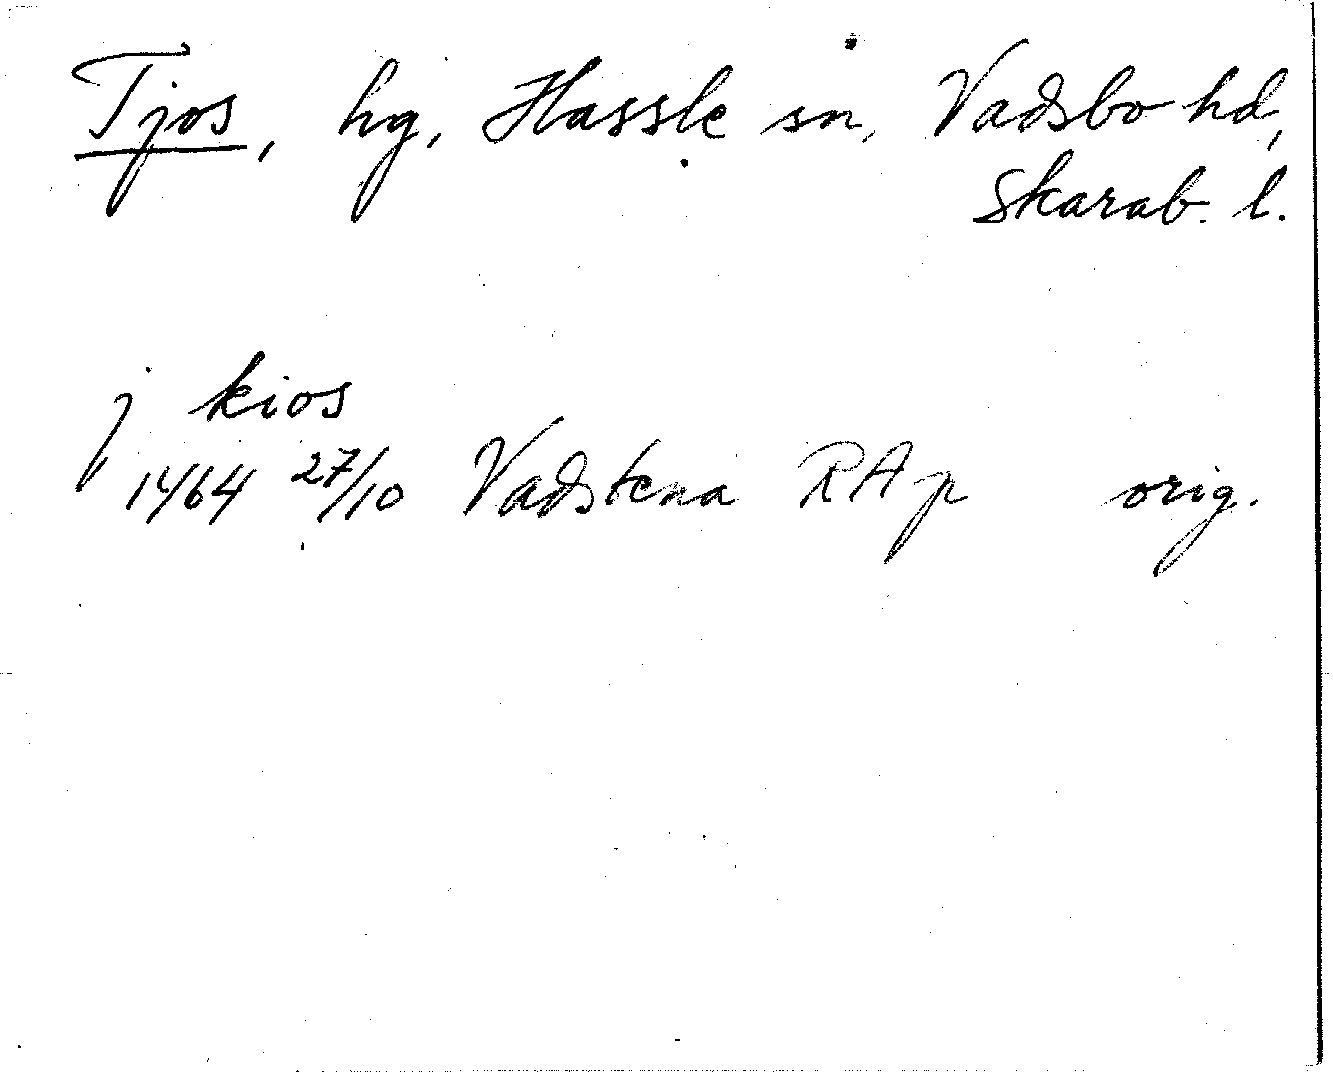 Tjos, hg, Hassle sn, Vadsbo hd,
Skarab. l.
j kios
1464 27/10 Vadstena RAp orig.